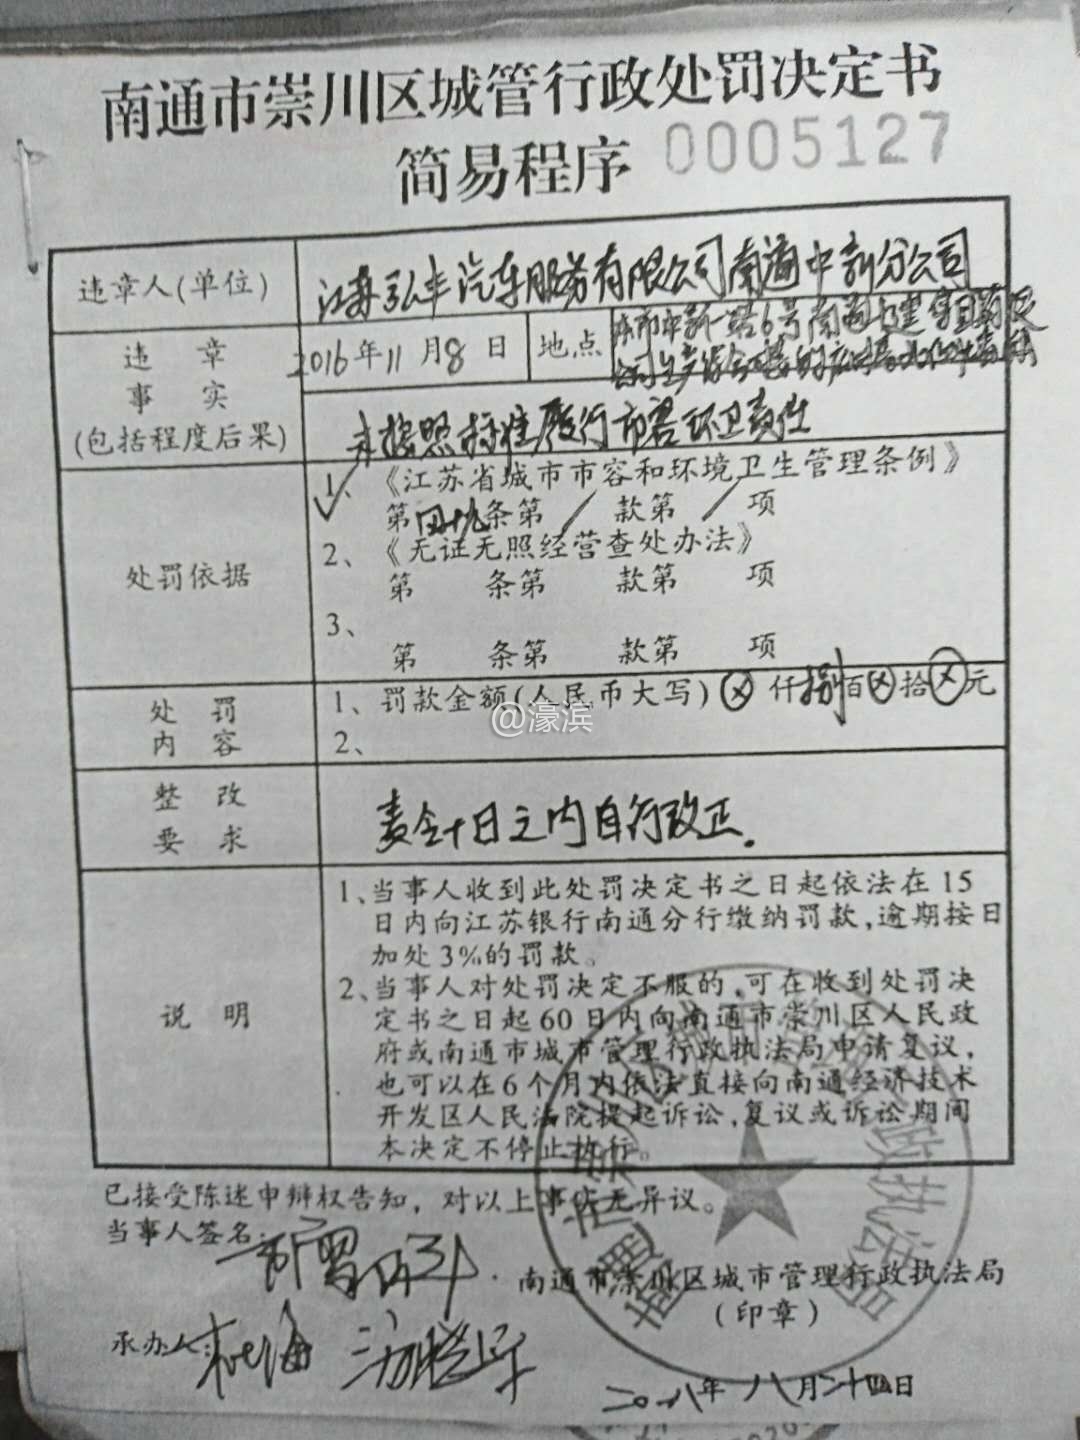 南通市崇川区城管行政处罚决定书
简易程序 0005127
违章人(单位) 江苏弘丰汽车服务有限公司南通中新分公司
违章
事实
(包括程度后果)
2016年11月8日 地点
未按照标准履行市容环卫责任
处罚依据
1、《江苏省城市市容和环境卫生管理条例》
第四九条第 / 款第 / 项
2、《无证无照经营查处办法》
第 条第 款第 项
3、
第 条第 款第 项
处罚
内容
1、罚款金额(人民币大写) ⊗仟捌佰⊗拾⊗元
2、
@濠滨
整改
要求
责令十日之内自行改正.
说明
1、当事人收到此处罚决定书之日起依法在15
日内向江苏银行南通分行缴纳罚款,逾期按日
加处3%的罚款。
2、当事人对处罚决定不服的,可在收到处罚决
定书之日起60日内向南通市崇川区人民政
府或南通市城市管理行政执法局申请复议,
也可以在6个月内依法直接向南通经济技术
开发区人民法院提起诉讼,复议或诉讼期间
本决定不停止执行。
已接受陈述申辩权告知，对以上事实无异议。
当事人签名:
南通市崇川区城市管理行政执法局
(印章)
承办人:
二〇一八年八月二十四日